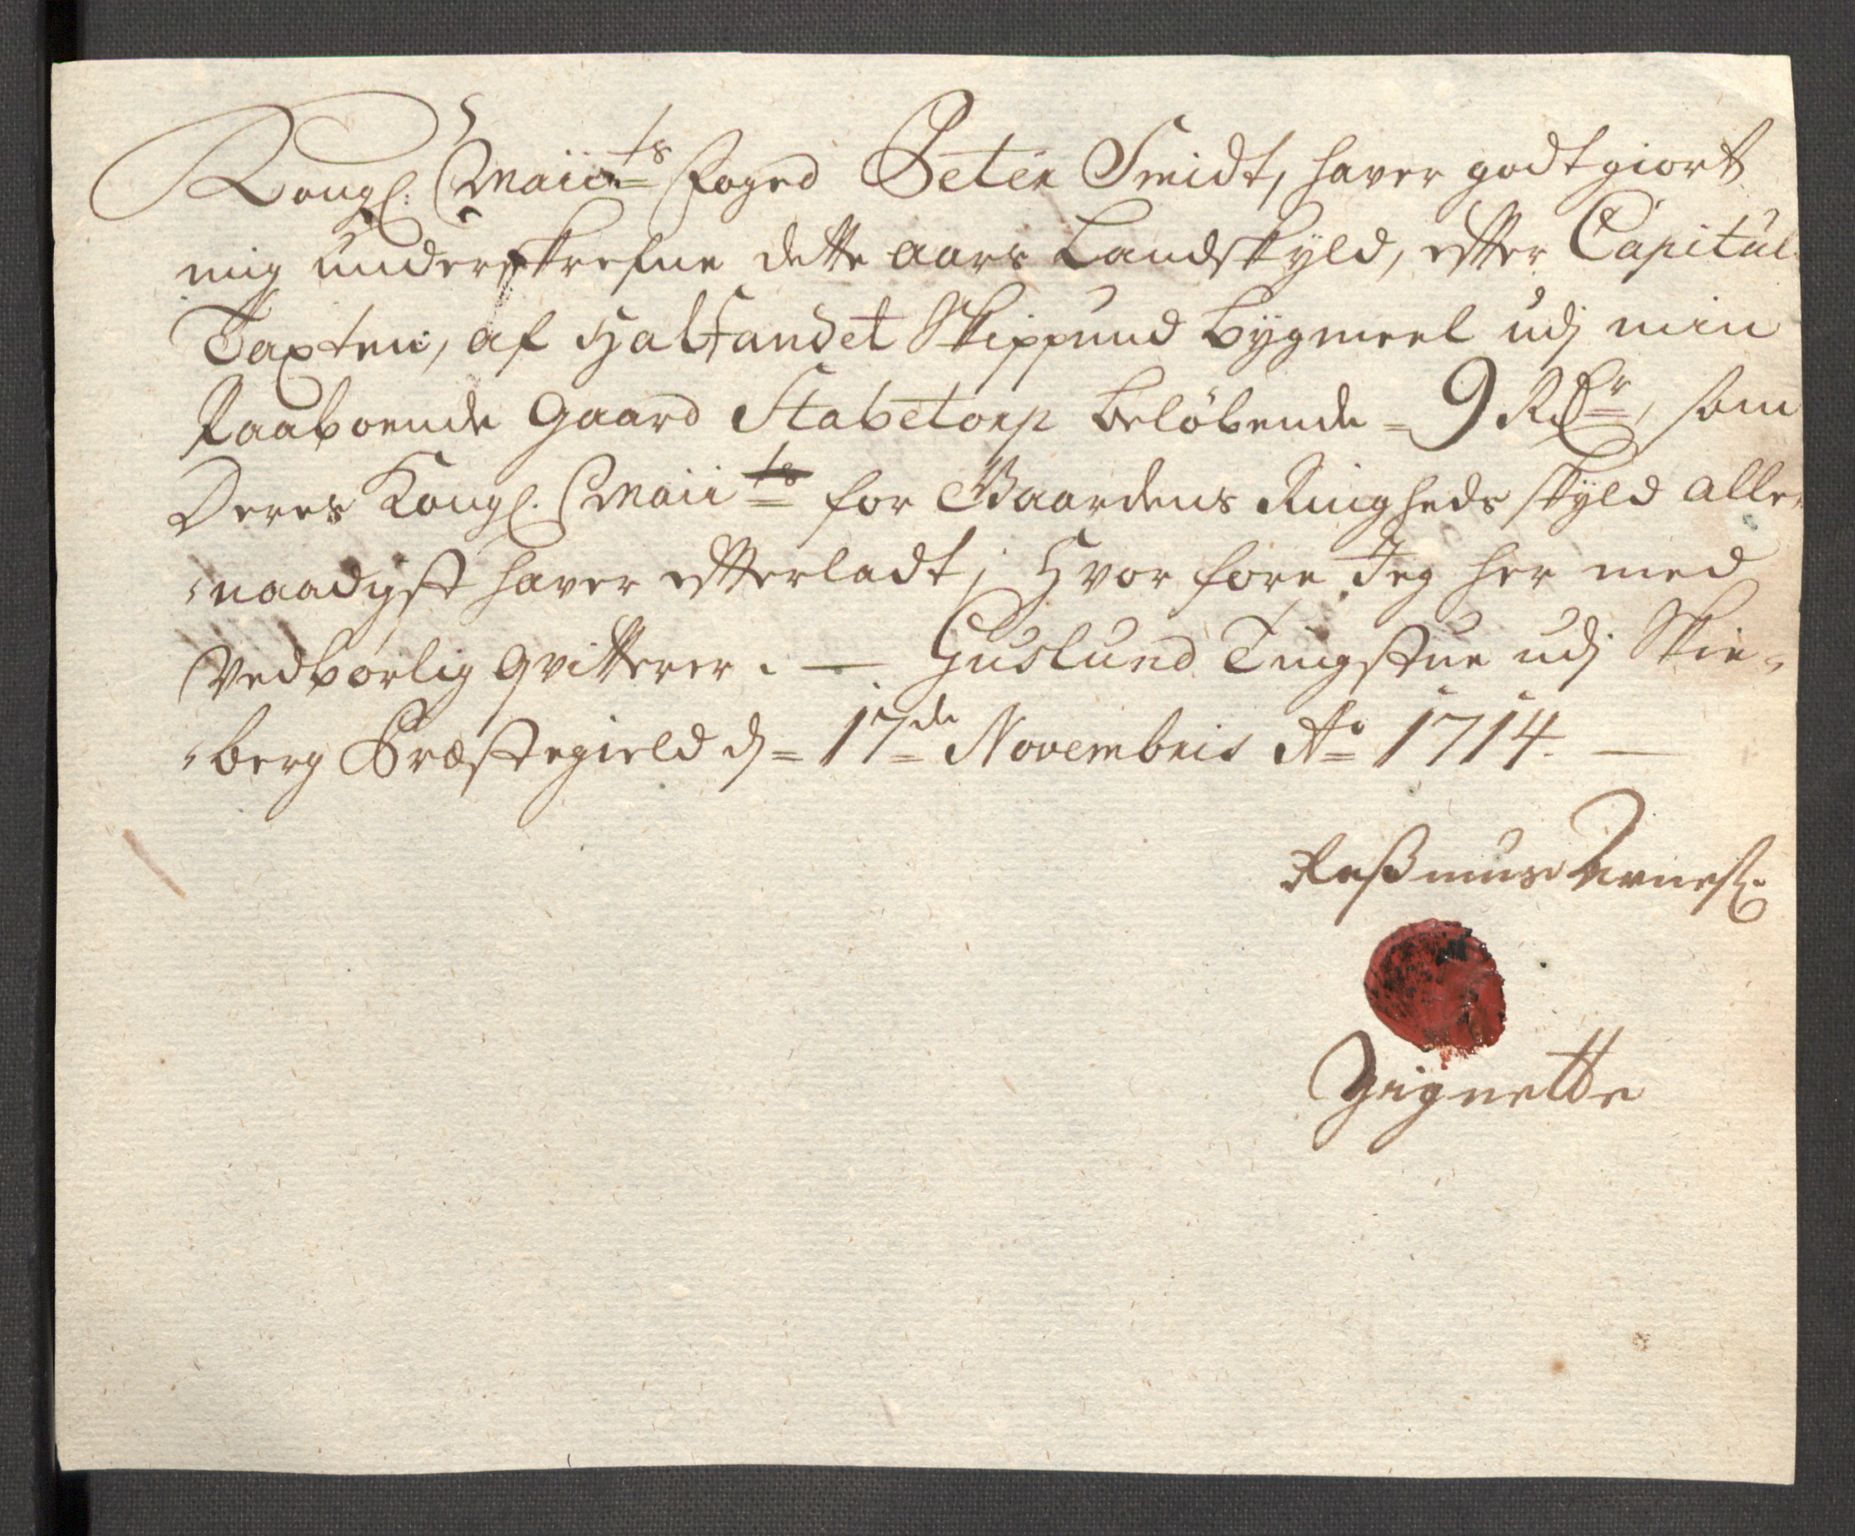 Kongl. Maiits Foged Peter Smidt, haver godtgiort
mig underskrefne dette aars Landskyld, efter Capitul
Taxten, af Halfandet Skippund Bygmeel udj min
Paaboende Gaard Stabetorp beløbende = 9 Rdr, som
Deres Kongl. Maiits for Gaardens Ringheds skyld aller
naadigst haver efterladt; Hvor fore Jeg her med
Vedbørlig qvitterer. — Guslund Tingstue udj Skie-
berg Præstegield d = 17de Novembris Ao 1714. —
Rasmus Arnes.
Zignette